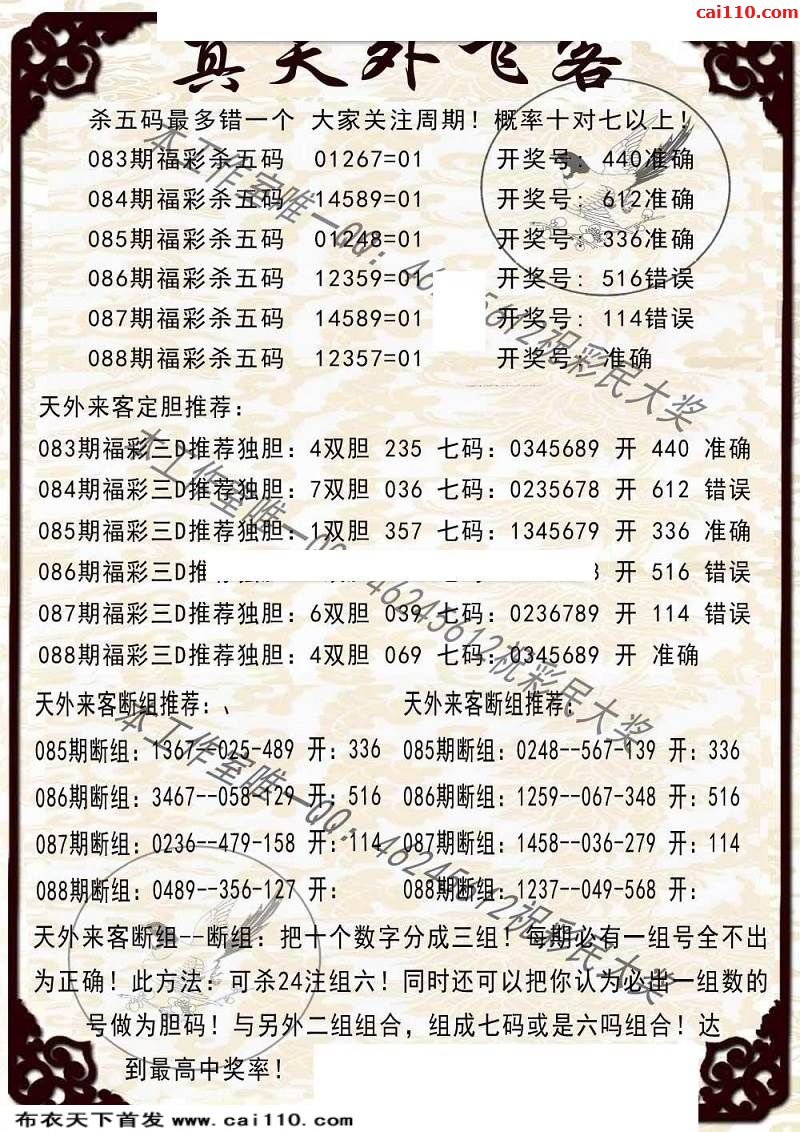 cai110.com
真天外飞客
杀五码最多错一个 大家关注周期！概率十对七以上！
083期福彩杀五码 01267=01 开奖号：440准确
084期福彩杀五码 14589=01 开奖号：612准确
085期福彩杀五码 01248=01 开奖号：336准确
086期福彩杀五码 12359=01 开奖号：516错误
087期福彩杀五码 14589=01 开奖号：114错误
088期福彩杀五码 12357=01 开奖号：准确
天外来客定胆推荐：
083期福彩三D推荐独胆：4双胆 235 七码：0345689 开 440 准确
084期福彩三D推荐独胆：7双胆 036 七码：0235678 开 612 错误
085期福彩三D推荐独胆：1双胆 357 七码：1345679 开 336 准确
086期福彩三D推荐独胆 开 516 错误
087期福彩三D推荐独胆：6双胆 039 七码：0236789 开 114 错误
088期福彩三D推荐独胆：4双胆 069 七码：0345689 开 准确
天外来客断组推荐：、 天外来客断组推荐：
085期断组：1367--025-489 开：336 085期断组：0248--567-139 开：336
086期断组：3467--058-129 开：516 086期断组：1259--067-348 开：516
087期断组：0236--479-158 开：114 087期断组：1458--036-279 开：114
088期断组：0489--356-127 开： 088期断组：1237--049-568 开：
天外来客断组--断组：把十个数字分成三组！每期必有一组号全不出
为正确！此方法：可杀24注组六！同时还可以把你认为必出一组数的
号做为胆码！与另外二组组合，组成七码或是六吗组合！达
到最高中奖率！
本工作室唯一QQ：46245612祝彩民大奖
本工作室唯一QQ：46245612祝彩民大奖
本工作室唯一QQ：46245612祝彩民大奖
布衣天下首发 www.cai110.com